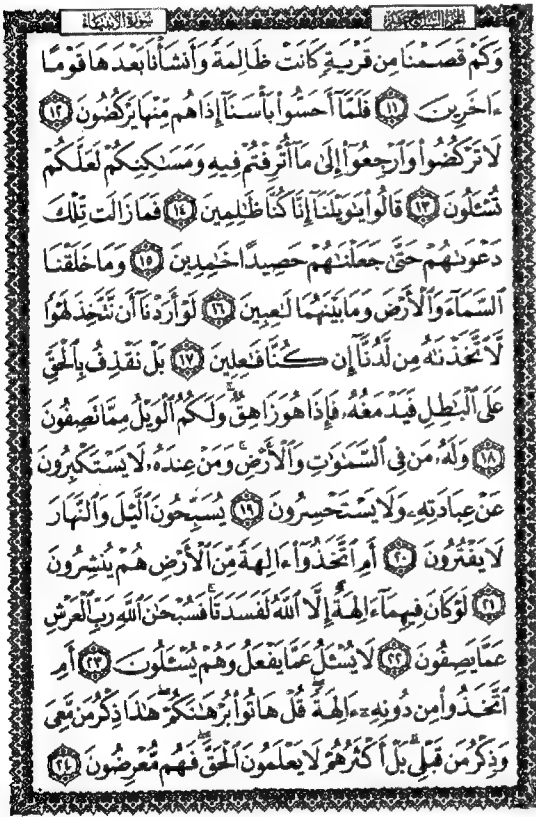 سُورَةُ الأَنبِيَاءِ
الجُزءُ السَّابِعَ عَشَرَ
وَكَمْ قَصَمْنَا مِن قَرْيَةٍ كَانَتْ ظَالِمَةً وَأَنشَأْنَا بَعْدَهَا قَوْمًا
ءَاخَرِينَ ١١ فَلَمَّآ أَحَسُّوا۟ بَأْسَنَآ إِذَا هُم مِّنْهَا يَرْكُضُونَ ١٢
لَا تَرْكُضُوا۟ وَٱرْجِعُوٓا۟ إِلَىٰ مَآ أُتْرِفْتُمْ فِيهِ وَمَسَٰكِنِكُمْ لَعَلَّكُمْ
تُسْـَٔلُونَ ١٣ قَالُوا۟ يَٰوَيْلَنَآ إِنَّا كُنَّا ظَٰلِمِينَ ١٤ فَمَا زَالَت تِّلْكَ
دَعْوَىٰهُمْ حَتَّىٰ جَعَلْنَٰهُمْ حَصِيدًا خَٰمِدِينَ ١٥ وَمَا خَلَقْنَا
ٱلسَّمَآءَ وَٱلْأَرْضَ وَمَا بَيْنَهُمَا لَٰعِبِينَ ١٦ لَوْ أَرَدْنَآ أَن نَّتَّخِذَ لَهْوًا
لَّٱتَّخَذْنَٰهُ مِن لَّدُنَّآ إِن كُنَّا فَٰعِلِينَ ١٧ بَلْ نَقْذِفُ بِٱلْحَقِّ
عَلَى ٱلْبَٰطِلِ فَيَدْمَغُهُۥ فَإِذَا هُوَ زَاهِقٌ ۚ وَلَكُمُ ٱلْوَيْلُ مِمَّا تَصِفُونَ
١٨ وَلَهُۥ مَن فِى ٱلسَّمَٰوَٰتِ وَٱلْأَرْضِ ۚ وَمَنْ عِندَهُۥ لَا يَسْتَكْبِرُونَ
عَنْ عِبَادَتِهِۦ وَلَا يَسْتَحْسِرُونَ ١٩ يُسَبِّحُونَ ٱلَّيْلَ وَٱلنَّهَارَ
لَا يَفْتُرُونَ ٢٠ أَمِ ٱتَّخَذُوٓا۟ ءَالِهَةً مِّنَ ٱلْأَرْضِ هُمْ يُنشِرُونَ
٢١ لَوْ كَانَ فِيهِمَآ ءَالِهَةٌ إِلَّا ٱللَّهُ لَفَسَدَتَا ۚ فَسُبْحَٰنَ ٱللَّهِ رَبِّ ٱلْعَرْشِ
عَمَّا يَصِفُونَ ٢٢ لَا يُسْـَٔلُ عَمَّا يَفْعَلُ وَهُمْ يُسْـَٔلُونَ ٢٣ أَمِ
ٱتَّخَذُوا۟ مِن دُونِهِۦٓ ءَالِهَةً ۖ قُلْ هَاتُوا۟ بُرْهَٰنَكُمْ ۖ هَٰذَا ذِكْرُ مَن مَّعِىَ
وَذِكْرُ مَن قَبْلِى ۗ بَلْ أَكْثَرُهُمْ لَا يَعْلَمُونَ ٱلْحَقَّ ۖ فَهُم مُّعْرِضُونَ ٢٤